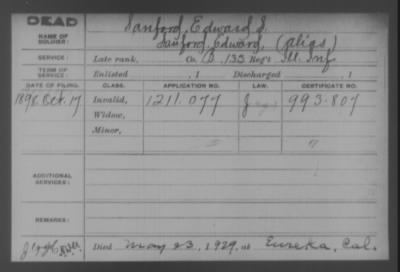 DEAD
NAME OF SOLDIER:
Sanford, Edward S.
Sanford, Edward, (alias.)
SERVICE:
Late rank, Co. D. 133 Reg't Ill. Inf.
TERM OF SERVICE:
Enlisted , 1 Discharged , 1
DATE OF FILING. CLASS. APPLICATION NO. LAW. CERTIFICATE NO.
1898 Oct. 17 Invalid, 1211.077 993.807
Widow,
Minor,
ADDITIONAL SERVICES:
REMARKS:
Died May 23, 1929, at Eureka, Cal.